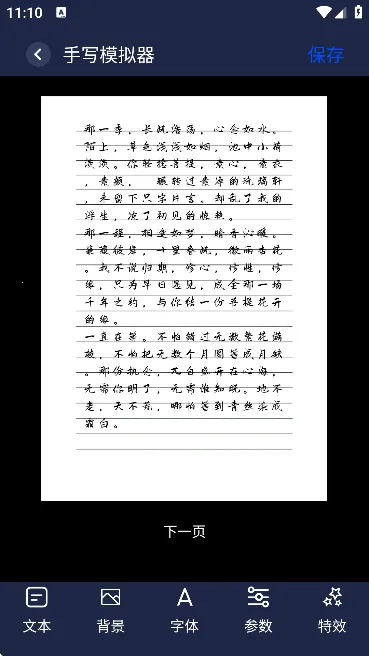 11:10
A
手写模拟器
保存
那一季，长风浩荡，心念如水。
陌上，草色浅浅如烟，池中小荷
淡淡。你轻捻菩提，素心，素衣
，素颜，　辗转过素净的流璃轩
，未留下只字片言。却乱了我的
浮生，凉了初见的惊艳。
那一程，相逢如梦，暗香沁暖。
蒹葭彼岸，十里春风，微雨杏花
。我不说归期，修心，修性，修
缘，只为早日遇见，成全那一场
千年之约，与你结一份菩提花开
的缘。
一直在等。不怕错过无数繁花满
枝，不怕把无数个月圆等成月缺
。那份执念，无白盛开在心海，
无需你明了，无需谁知晓。地不
老，天不荒，哪怕等到青丝染成
霜白。
下一页
文本
背景
字体
参数
特效